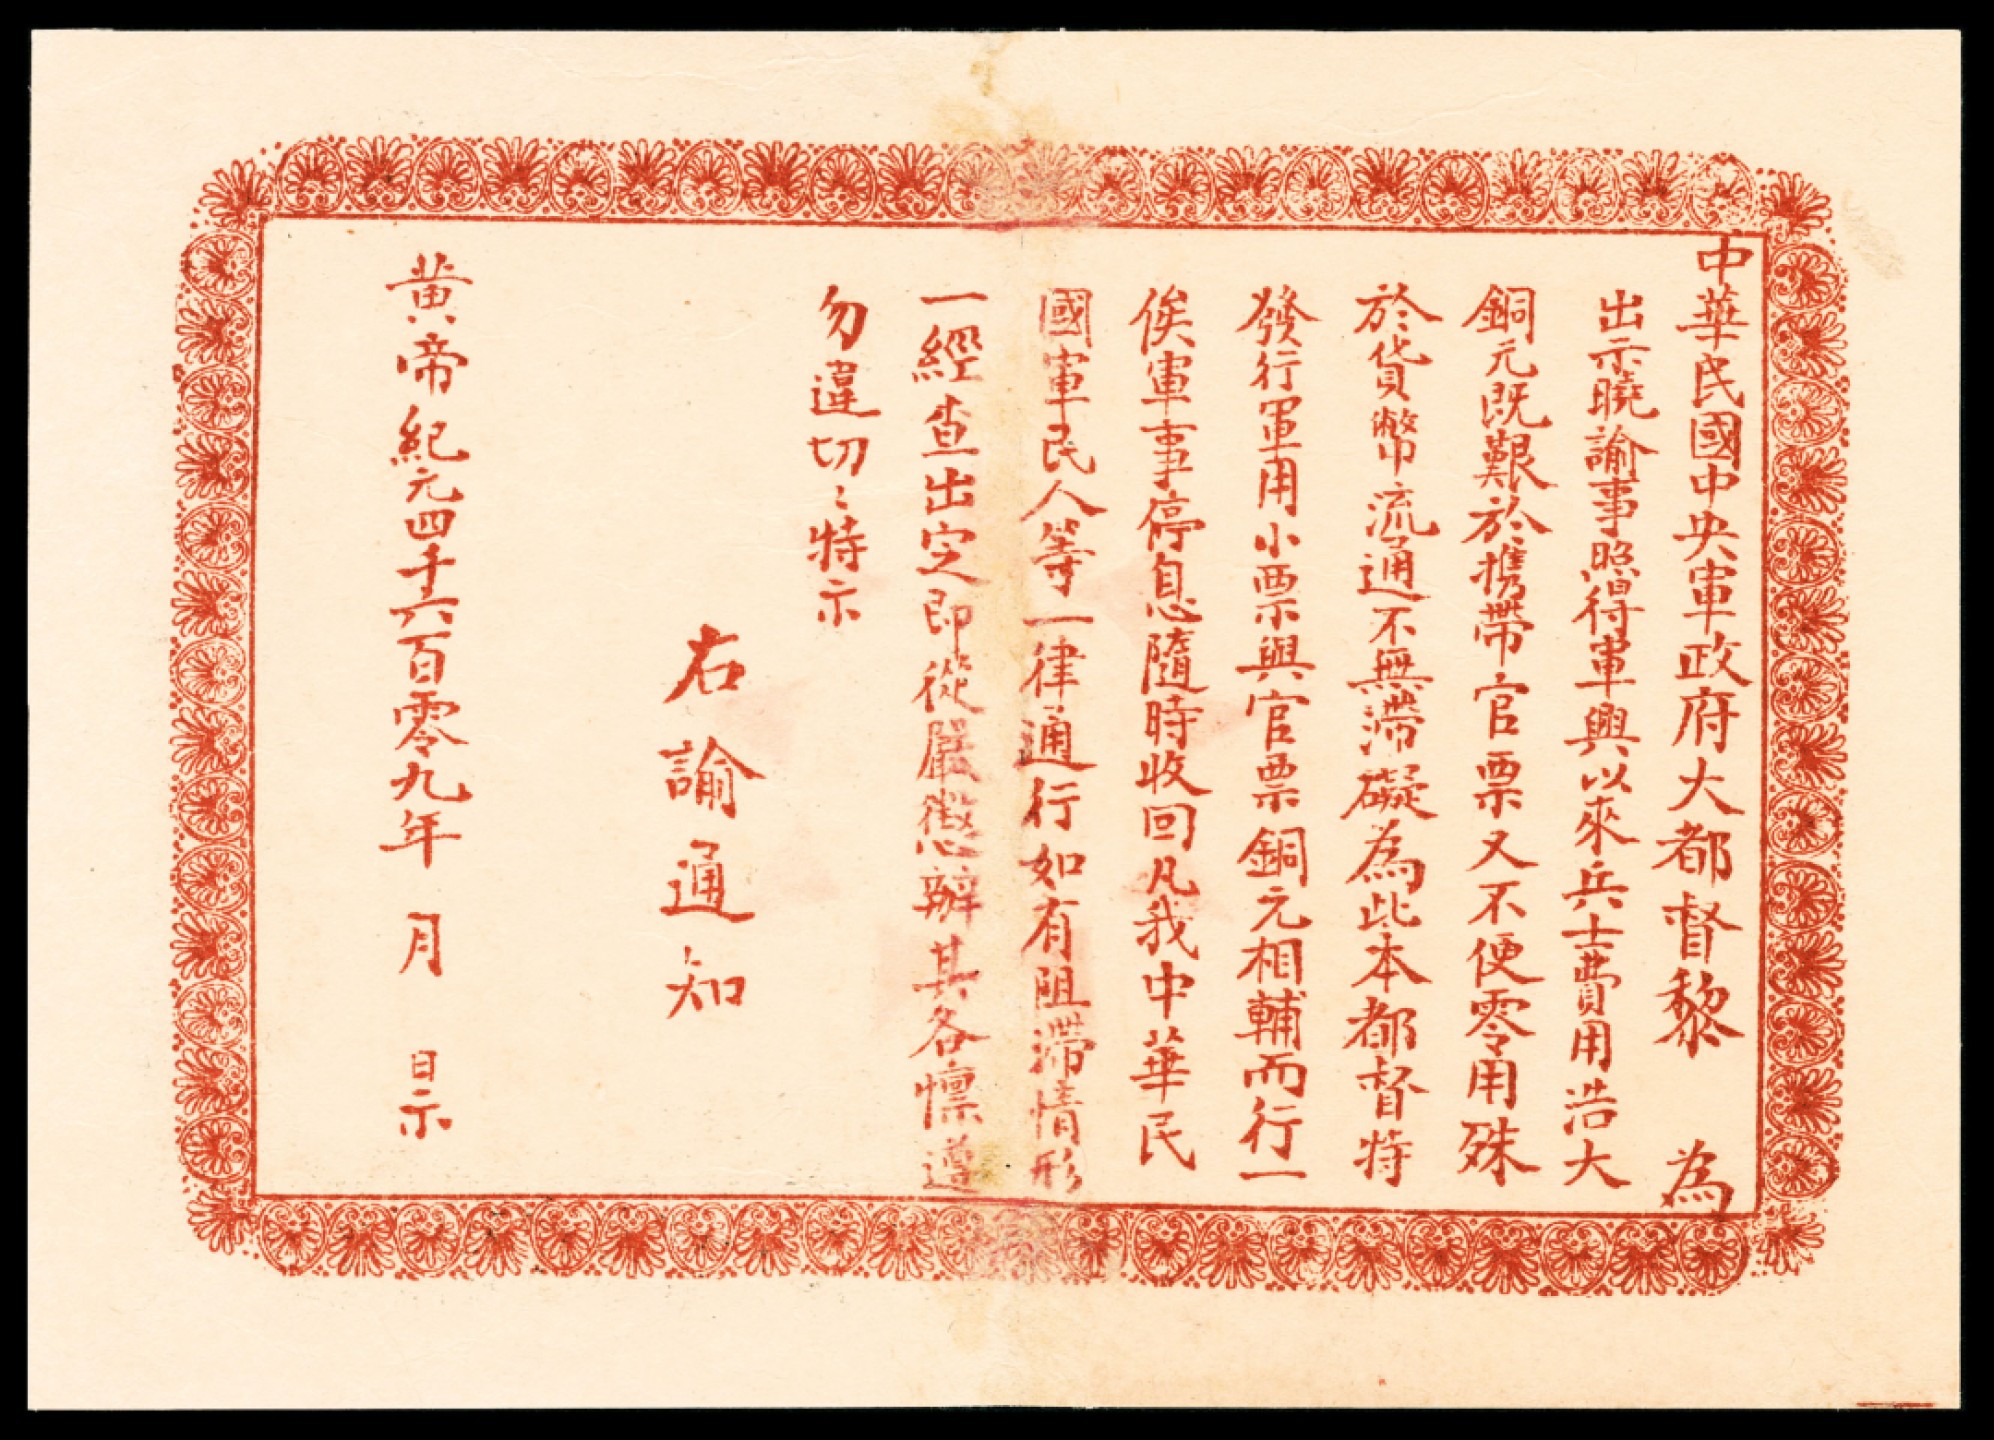 中華民國中央軍政府大都督黎 為
出示曉諭事照得軍興以來兵士費用浩大
銅元既艱於携帶官票又不便零用殊
於貨幣流通不無滯礙為此本都督特
發行軍用小票與官票銅元相輔而行一
俟軍事停息隨時收回凡我中華民
國軍民人等一律通行如有阻滯情形
一經查出定即從嚴懲辦其各懍遵
勿違切〻特示
右諭通知
黃帝紀元四千六百零九年 月 日示